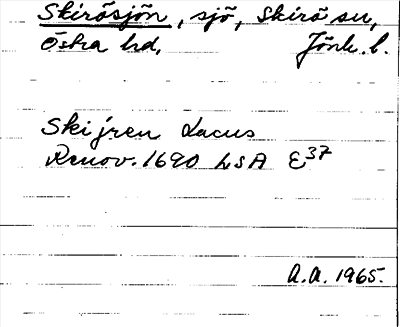 Skirösjön, sjö, Skirö sn,
Östra hd, Jönk. l.
Skijren Lacus
Renov. 1690 LSA E37
A.A. 1965.